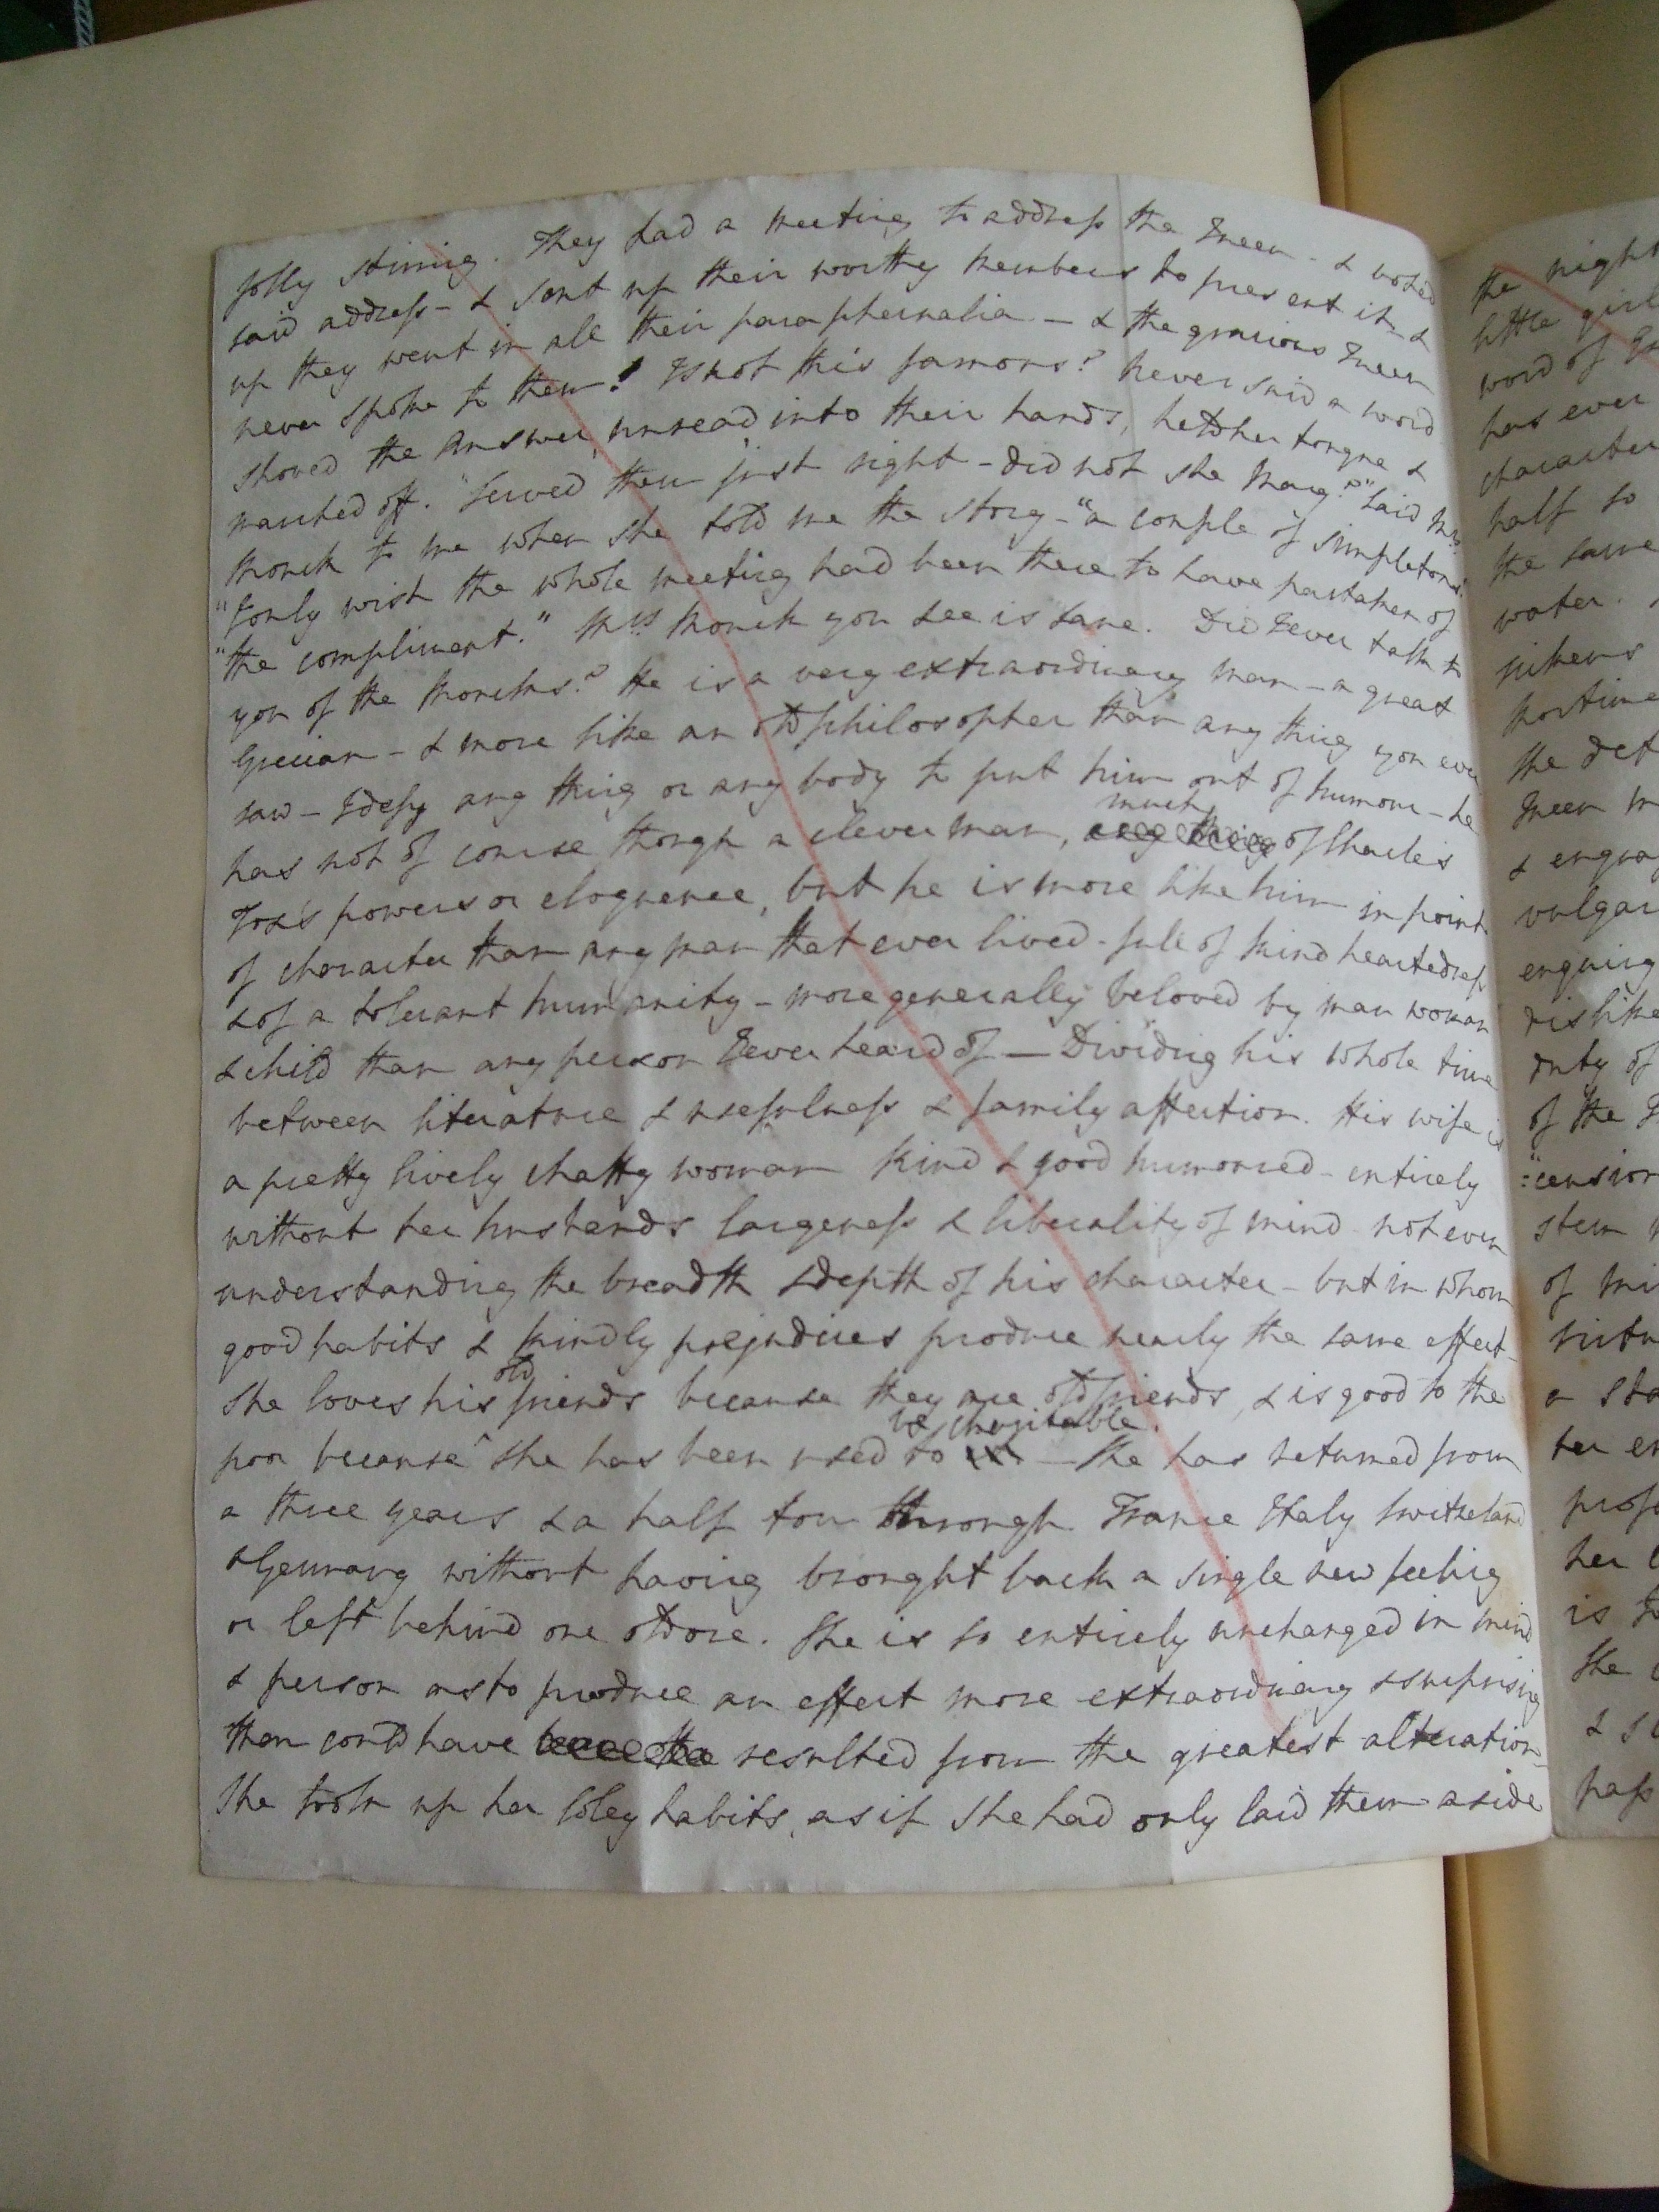 folly stirring. They had a meeting to address the Queen - & voted
said address - & sent up their worthy members to present it - &
up they went in all their paraphernalia - & the gracious Queen
never spoke to them! Is not this famous? Never said a word
shoved the answer, unread into their hands, held her tongue &
marched off. "Served them just right - did not she Mary?" said Mrs.
Monck to me when she told me the story - "a couple of simpletons!
"I only wish the whole meeting had been there to have partaken of
"the compliment." Mrs. Monck you see is sane. Did I ever talk to
you of the Moncks? He is a very extraordinary man - a great
Grecian - & more like an old philosopher than any thing you ever
saw - I defy any thing or any body to put him out of humour - he
has not of course though a clever man, much of Charles
Fox's powers or eloquence, but he is more like him in point
of character than any man that ever lived - full of kind heartedness
& of a tolerant humanity - more generally beloved by man woman
& child than any person I ever heard of - Dividing his whole time
between literature & usefulness & family affection. His wife is
a pretty lively chatty woman kind & good humoured - entirely
without her husbands largeness & liberality of mind not even
understanding the breadth & depth of his character - but in whom
good habits & kindly prejudices produce nearly the same effect -
She loves his old friends because they are old friends, & is good to the
poor because she has been used to be charitable. - She has returned from
a three years & a half tour through France Italy Switzerland
& Germany without having brought back a single new feeling
or left behind one old one. She is so entirely unchanged in mind
& person as to produce an effect more extraordinary & surprising
than could have resulted from the greatest alteration -
She took up her Coley habits, as if she had only laid them aside
the night
little girl
word of
has ever
character
half so
the same
water.
the
Queen
&
vulgar
enquiry
dislike
duty of
of the
stern
of
a
her
the
her
is
She
&